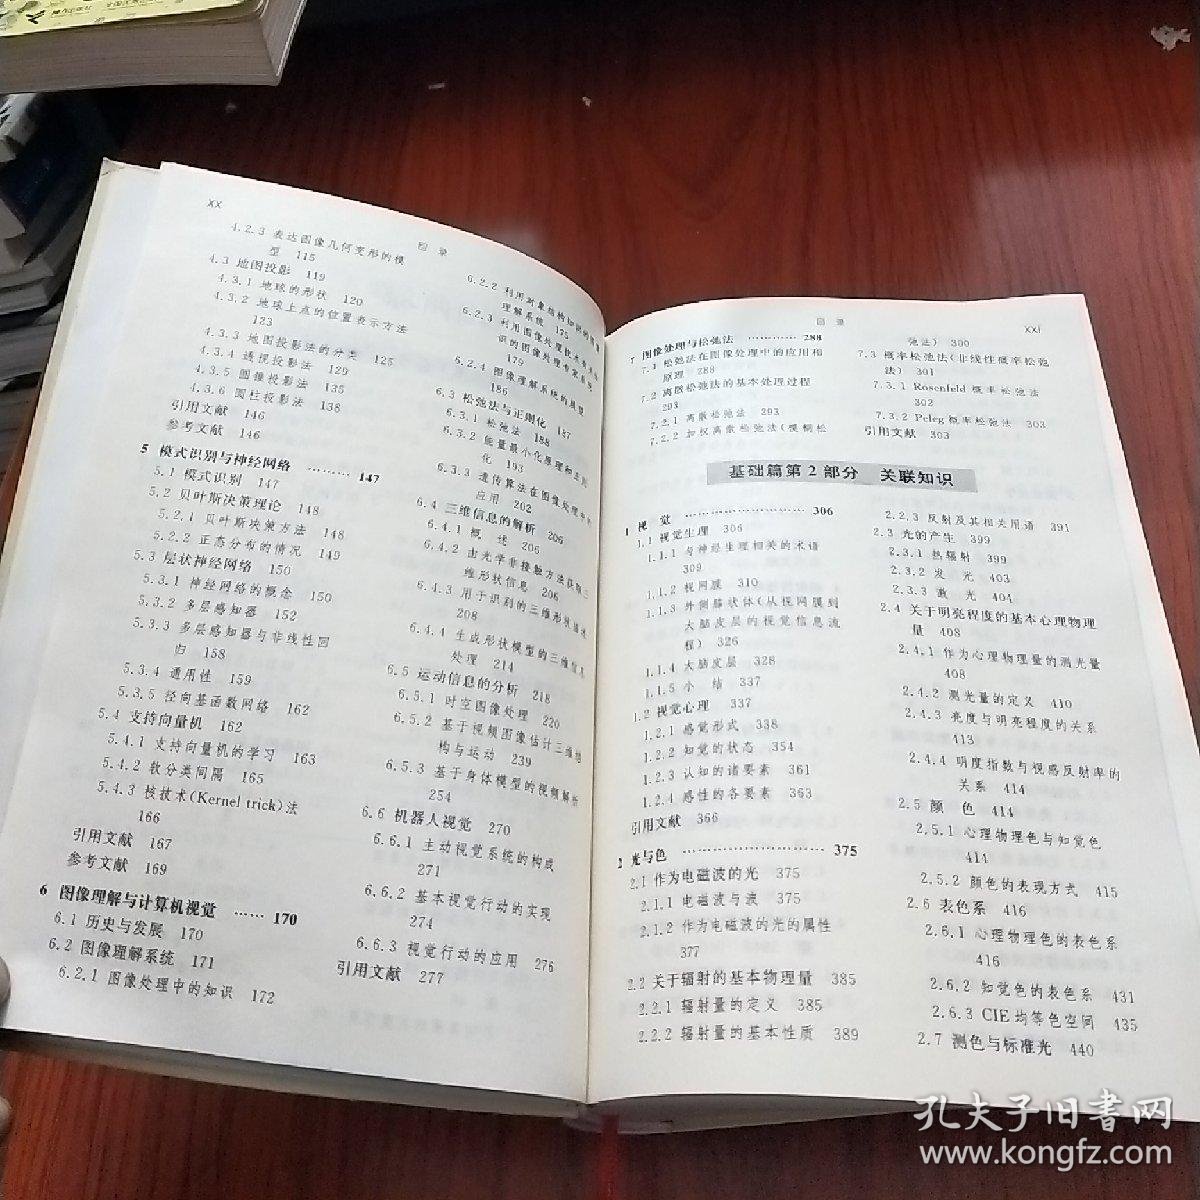 XX
目 录
4.2.3 表达图像几何变形的模
型 115
4.3 地图投影 119
4.3.1 地球的形状 120
4.3.2 地球上点的位置表示方法
123
4.3.3 地图投影法的分类 125
4.3.4 透视投影法 129
4.3.5 圆锥投影法 135
4.3.6 圆柱投影法 138
引用文献 146
参考文献 146
5 模式识别与神经网络 ……… 147
5.1 模式识别 147
5.2 贝叶斯决策理论 148
5.2.1 贝叶斯决策方法 148
5.2.2 正态分布的情况 149
5.3 层状神经网络 150
5.3.1 神经网络的概念 150
5.3.2 多层感知器 152
5.3.3 多层感知器与非线性回
归 158
5.3.4 通用性 159
5.3.5 径向基函数网络 162
5.4 支持向量机 162
5.4.1 支持向量机的学习 163
5.4.2 软分类间隔 165
5.4.3 核技术(Kernel trick)法
166
引用文献 167
参考文献 169
6 图像理解与计算机视觉 …… 170
6.1 历史与发展 170
6.2 图像理解系统 171
6.2.1 图像处理中的知识 172
6.2.2 利用对象结构知识的图像
理解系统 175
6.2.3 利用图像处理技术
识的图像处理专家系统
179
6.2.4 图像理解系统的展望
186
6.3 松弛法与正则化 187
6.3.1 松弛法 188
6.3.2 能量最小化原理和正则
化 193
6.3.3 遗传算法在图像处理中的
应用 202
6.4 三维信息的解析 206
6.4.1 概 述 206
6.4.2 由光学非接触方法获取三
维形状信息 206
6.4.3 用于识别的三维形状描述
208
6.4.4 生成形状模型的三维信息
处理 214
6.5 运动信息的分析 218
6.5.1 时空图像处理 220
6.5.2 基于视频图像估计三维结
构与运动 239
6.5.3 基于身体模型的视频解析
254
6.6 机器人视觉 270
6.6.1 主动视觉系统的构成
271
6.6.2 基本视觉行动的实现
274
6.6.3 视觉行动的应用 276
引用文献 277
目 录
xxi
7 图像处理与松弛法 ………… 288
7.1 松弛法在图像处理中的应用和
原理 288
7.2 离散松弛法的基本处理过程
293
7.2.1 离散松弛法 293
7.2.2 加权离散松弛法(模糊松
弛法) 300
7.3 概率松弛法(非线性概率松弛
法) 301
7.3.1 Rosenfeld 概率松弛法
302
7.3.2 Peleg 概率松弛法 303
引用文献 303
基础篇第 2 部分 关联知识
1 视 觉 ……………………… 306
1.1 视觉生理 306
1.1.1 与神经生理相关的术语
309
1.1.2 视网膜 310
1.1.3 外侧膝状体(从视网膜到
大脑皮层的视觉信息流
程) 326
1.1.4 大脑皮层 328
1.1.5 小 结 337
1.2 视觉心理 337
1.2.1 感觉形式 338
1.2.2 知觉的状态 354
1.2.3 认知的诸要素 361
1.2.4 感性的各要素 363
引用文献 366
2 光与色 ……………………… 375
2.1 作为电磁波的光 375
2.1.1 电磁波与波 375
2.1.2 作为电磁波的光的属性
377
2.2 关于辐射的基本物理量 385
2.2.1 辐射量的定义 385
2.2.2 辐射量的基本性质 389
2.2.3 反射及其相关用语 391
2.3 光的产生 399
2.3.1 热辐射 399
2.3.2 发 光 403
2.3.3 激 光 404
2.4 关于明亮程度的基本心理物理
量 408
2.4.1 作为心理物理量的测光量
408
2.4.2 测光量的定义 410
2.4.3 亮度与明亮程度的关系
413
2.4.4 明度指数与视感反射率的
关系 414
2.5 颜 色 414
2.5.1 心理物理色与知觉色
414
2.5.2 颜色的表现方式 415
2.6 表色系 416
2.6.1 心理物理色的表色系
416
2.6.2 知觉色的表色系 431
2.6.3 CIE均等色空间 435
2.7 测色与标准光 440
孔夫子旧书网
www.kongfz.com